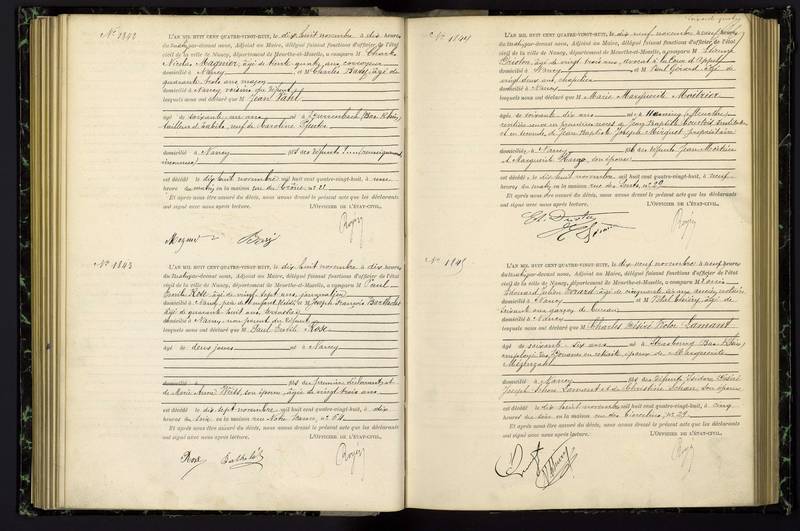 N° 1842
L'AN MIL HUIT CENT QUATRE-VINGT-HUIT, le dix huit novembre à dix heures
du matin par-devant nous, Adjoint au Maire, délégué faisant fonctions d'officier de l'état
civil de la ville de Nancy, département de Meurthe-et-Moselle, a comparu M Charles
Nicolas Magnier, âgé de trente quatre ans
domicilié à Nancy et M Charles âgé de
quarante trois ans
domicilié à Nancy voisins du défunt
lesquels nous ont déclaré que M Jean Vatel
âgé de soixante un ans né à (Bas Rhin)
tailleur d'habits, veuf de Caroline
domicilié à Nancy fils des défunts
est décédé le dix huit novembre mil huit cent quatre-vingt-huit, à une
heure du matin en la maison rue
Et après nous être assuré du décès, nous avons dressé le présent acte que les déclarants
ont signé avec nous après lecture. L'OFFICIER DE L'ÉTAT-CIVIL,
N° 1843
L'AN MIL HUIT CENT QUATRE-VINGT-HUIT, le dix huit novembre à dix heures
du matin par-devant nous, Adjoint au Maire, délégué faisant fonctions d'officier de l'état
civil de la ville de Nancy, département de Meurthe-et-Moselle, a comparu M Paul
Emile Rose âgé de vingt sept ans, journalier
domicilié à Nancy, père de l'enfant et M Joseph François
âgé de quarante huit ans
domicilié à Nancy non parent du défunt
lesquels nous ont déclaré que M Paul Emile Rose
âgé de deux jours né à Nancy
fils du premier déclarant et
de Marie Anne Weiss, son épouse, âgée de vingt trois ans
est décédé le dix sept novembre mil huit cent quatre-vingt-huit, à dix
heures du soir en la maison rue Notre Dame, n° 54
Et après nous être assuré du décès, nous avons dressé le présent acte que les déclarants
ont signé avec nous après lecture. L'OFFICIER DE L'ÉTAT-CIVIL,
Rose
N° 1844
L'AN MIL HUIT CENT QUATRE-VINGT-HUIT, le dix neuf novembre à neuf heures
du matin par-devant nous, Adjoint au Maire, délégué faisant fonctions d'officier de l'état
civil de la ville de Nancy, département de Meurthe-et-Moselle, a comparu M
âgé de vingt trois ans, avocat à la Cour d'appel
domicilié à Nancy et M Paul Gérard âgé de
vingt deux ans,
domicilié à Nancy
lesquels nous ont déclaré que M Marie Marguerite
âgée de soixante dix ans née à
rentière, veuve en premières noces de Jean Baptiste
et en secondes de Jean Baptiste Joseph propriétaire
domiciliée à Nancy fille des défunts Jean
et Marguerite son épouse
est décédée le dix huit novembre mil huit cent quatre-vingt-huit, à neuf
heures du matin en la maison rue des n° 29
Et après nous être assuré du décès, nous avons dressé le présent acte que les déclarants
ont signé avec nous après lecture. L'OFFICIER DE L'ÉTAT-CIVIL,
N° 1845
L'AN MIL HUIT CENT QUATRE-VINGT-HUIT, le dix neuf novembre à neuf heures
du matin par-devant nous, Adjoint au Maire, délégué faisant fonctions d'officier de l'état
civil de la ville de Nancy, département de Meurthe-et-Moselle, a comparu M Louis
Edouard Julien âgé de cinquante six ans, ancien notaire
domicilié à Nancy et M Vital Thiéry, âgé de
soixante ans garçon de bureau
domicilié à Nancy
lesquels nous ont déclaré que M Charles Désiré Victor Lamant
âgé de soixante dix ans né à Strasbourg (Bas Rhin)
employé des Douanes en retraite, époux de Marguerite
domicilié à Nancy fils des défunts Isidore Désiré
Joseph Lamant et de Christine son épouse
est décédé le dix huit novembre mil huit cent quatre-vingt-huit, à cinq
heures du soir en la maison rue n° 29
Et après nous être assuré du décès, nous avons dressé le présent acte que les déclarants
ont signé avec nous après lecture. L'OFFICIER DE L'ÉTAT-CIVIL,